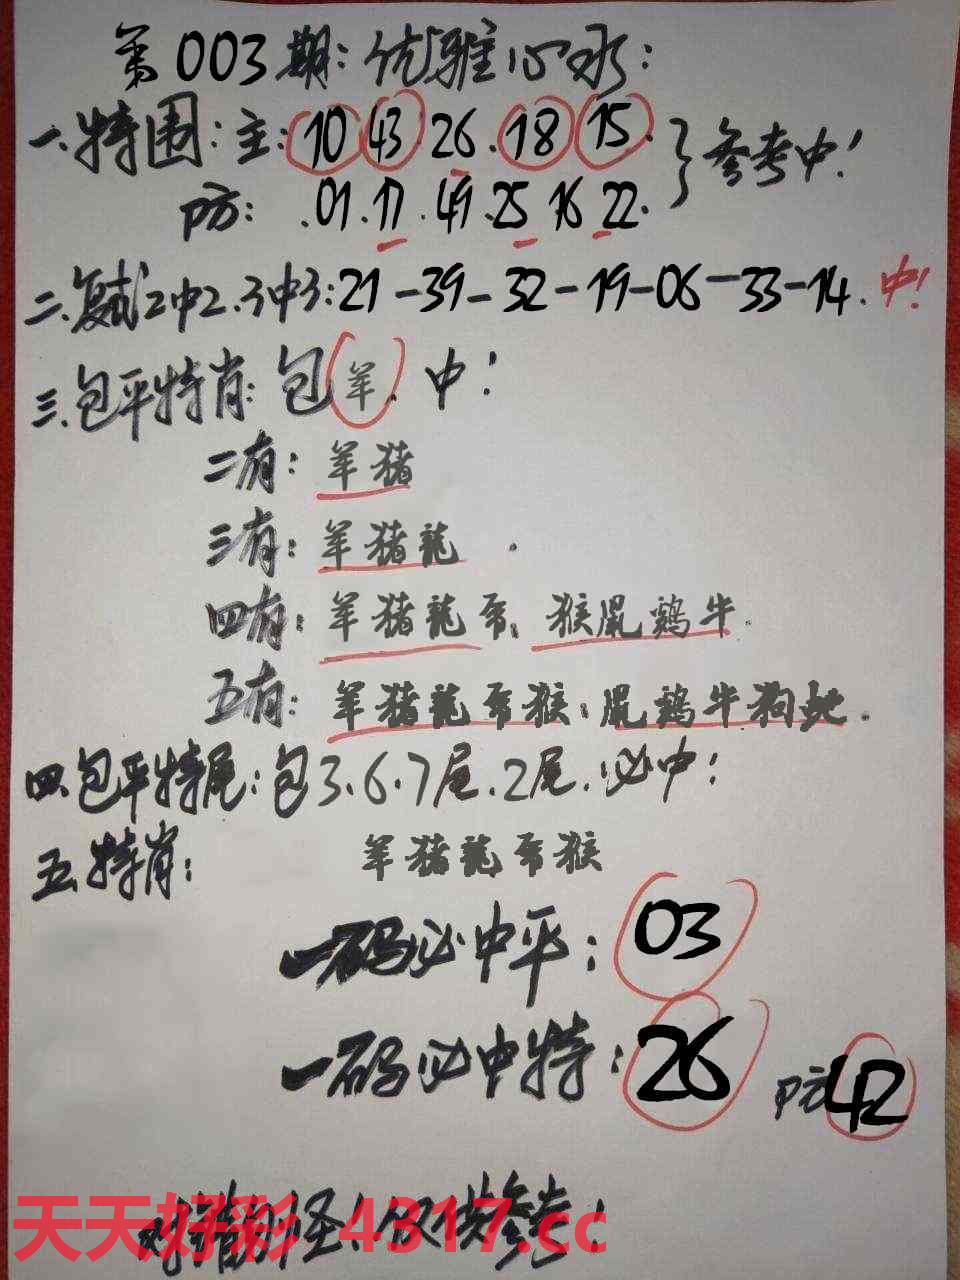 第003期:优雅心水:
一.特围:主:10 43.26.18.15.}参考中!
防:.01.17.49.25 16 22.
二.复试2中2.3中3:21-39-32-19-06-33-14.中!
三.包平特肖:包羊.中!
二有:羊猪
三有:羊猪龍.
四有:羊猪龍希.猴鼠鷄牛.
五有:羊猪龍希猴.鼠鷄牛狗蛇.
四.包平特尾:包3.6.7尾.2尾.必中!
五.特肖:羊猪龍希猴
一码必中平:03
一码必中特:26 防42
对错别怪!仅供参考!
天天好彩 4317.cc